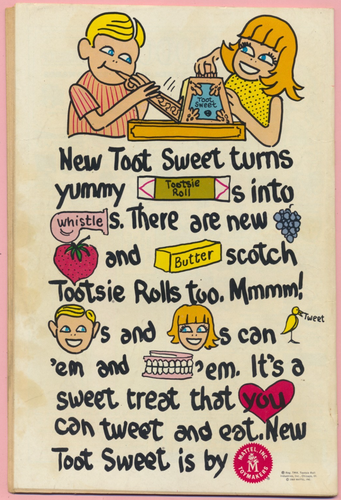 Toot Sweet
New Toot Sweet turns
yummy Tootsie Roll s into
whistle s. There are new
and Butter scotch
Tootsie Rolls too. Mmmm!
Tweet
s and s can
'em and 'em. It's a
sweet treat that you
can tweet and eat. New
Toot Sweet is by MATTEL, INC. TOYMAKERS M